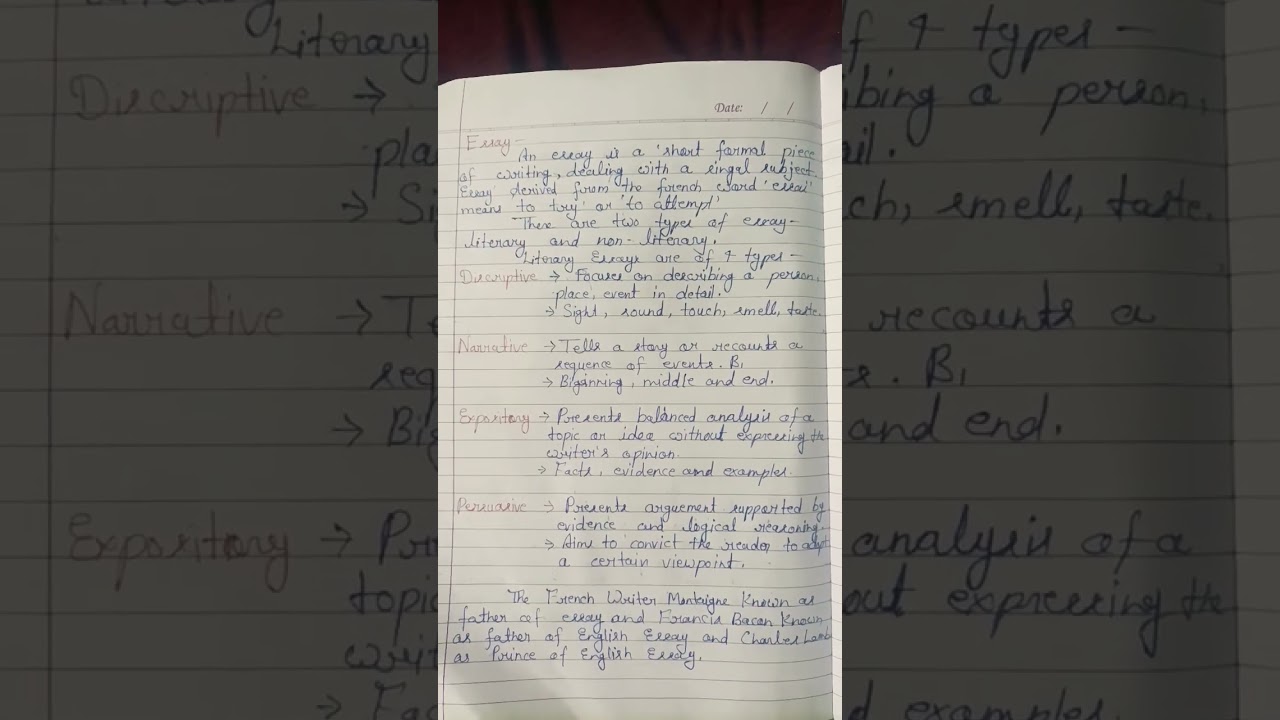 Date: / /
Essay-
An essay is a 'short formal piece
of writing, dealing with a singal subject.
Essay derived from the french word 'essai'
means to try' or 'to attempt'
There are two types of essay-
literary and non-literary.
Literary Essays are of 4 types-
Discriptive → Focuses on describing a person,
place, event in detail.
→ Sight, sound, touch, smell, taste.
Narrative → Tells a story or recounts a
sequence of events. B,
→ Biganning, middle and end.
Expository → Presents balanced analysis of a
topic or idea without expressing the
writer's opinion.
→ Facts, evidence and examples.
Persuasive → Presents arguement supported by
evidence and logical reasoning.
→ Aims to convict the reader to adopt
a certain viewpoint.
The French Writer Montaigne Known as
father of essay and Francis Bacon Known
as father of English Essay and Charles Lamb
as Prince of English Essay.